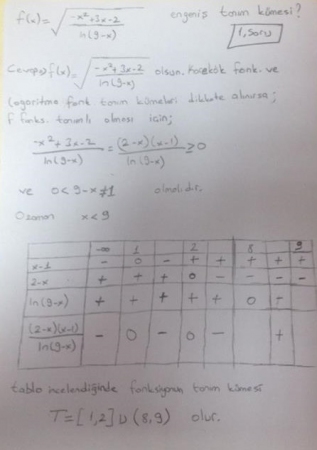 f(x)= √(-x²+3x-2 / ln(9-x)) en geniş tanım kümesi?
1. Soru
Cevap: f(x)= √(-x²+3x-2 / ln(9-x)) olsun. Karekök fonk. ve
Logaritma fonk tanım kümeleri dikkate alınırsa;
f fonks. tanımlı olması için;
-x²+3x-2 / ln(9-x) = (2-x)(x-1) / ln(9-x) ≥ 0
ve 0<9-x≠1 olmalıdır.
O zaman x<9
-∞ 1 2 8 9
x-1 - 0 - + + + + +
2-x + + + 0 - - - -
ln(9-x) + + + + + 0 -
(2-x)(x-1) / ln(9-x) - 0 - 0 - +
tablo incelendiğinde fonksiyonun tanım kümesi
T=[1,2]∪(8,9) olur.